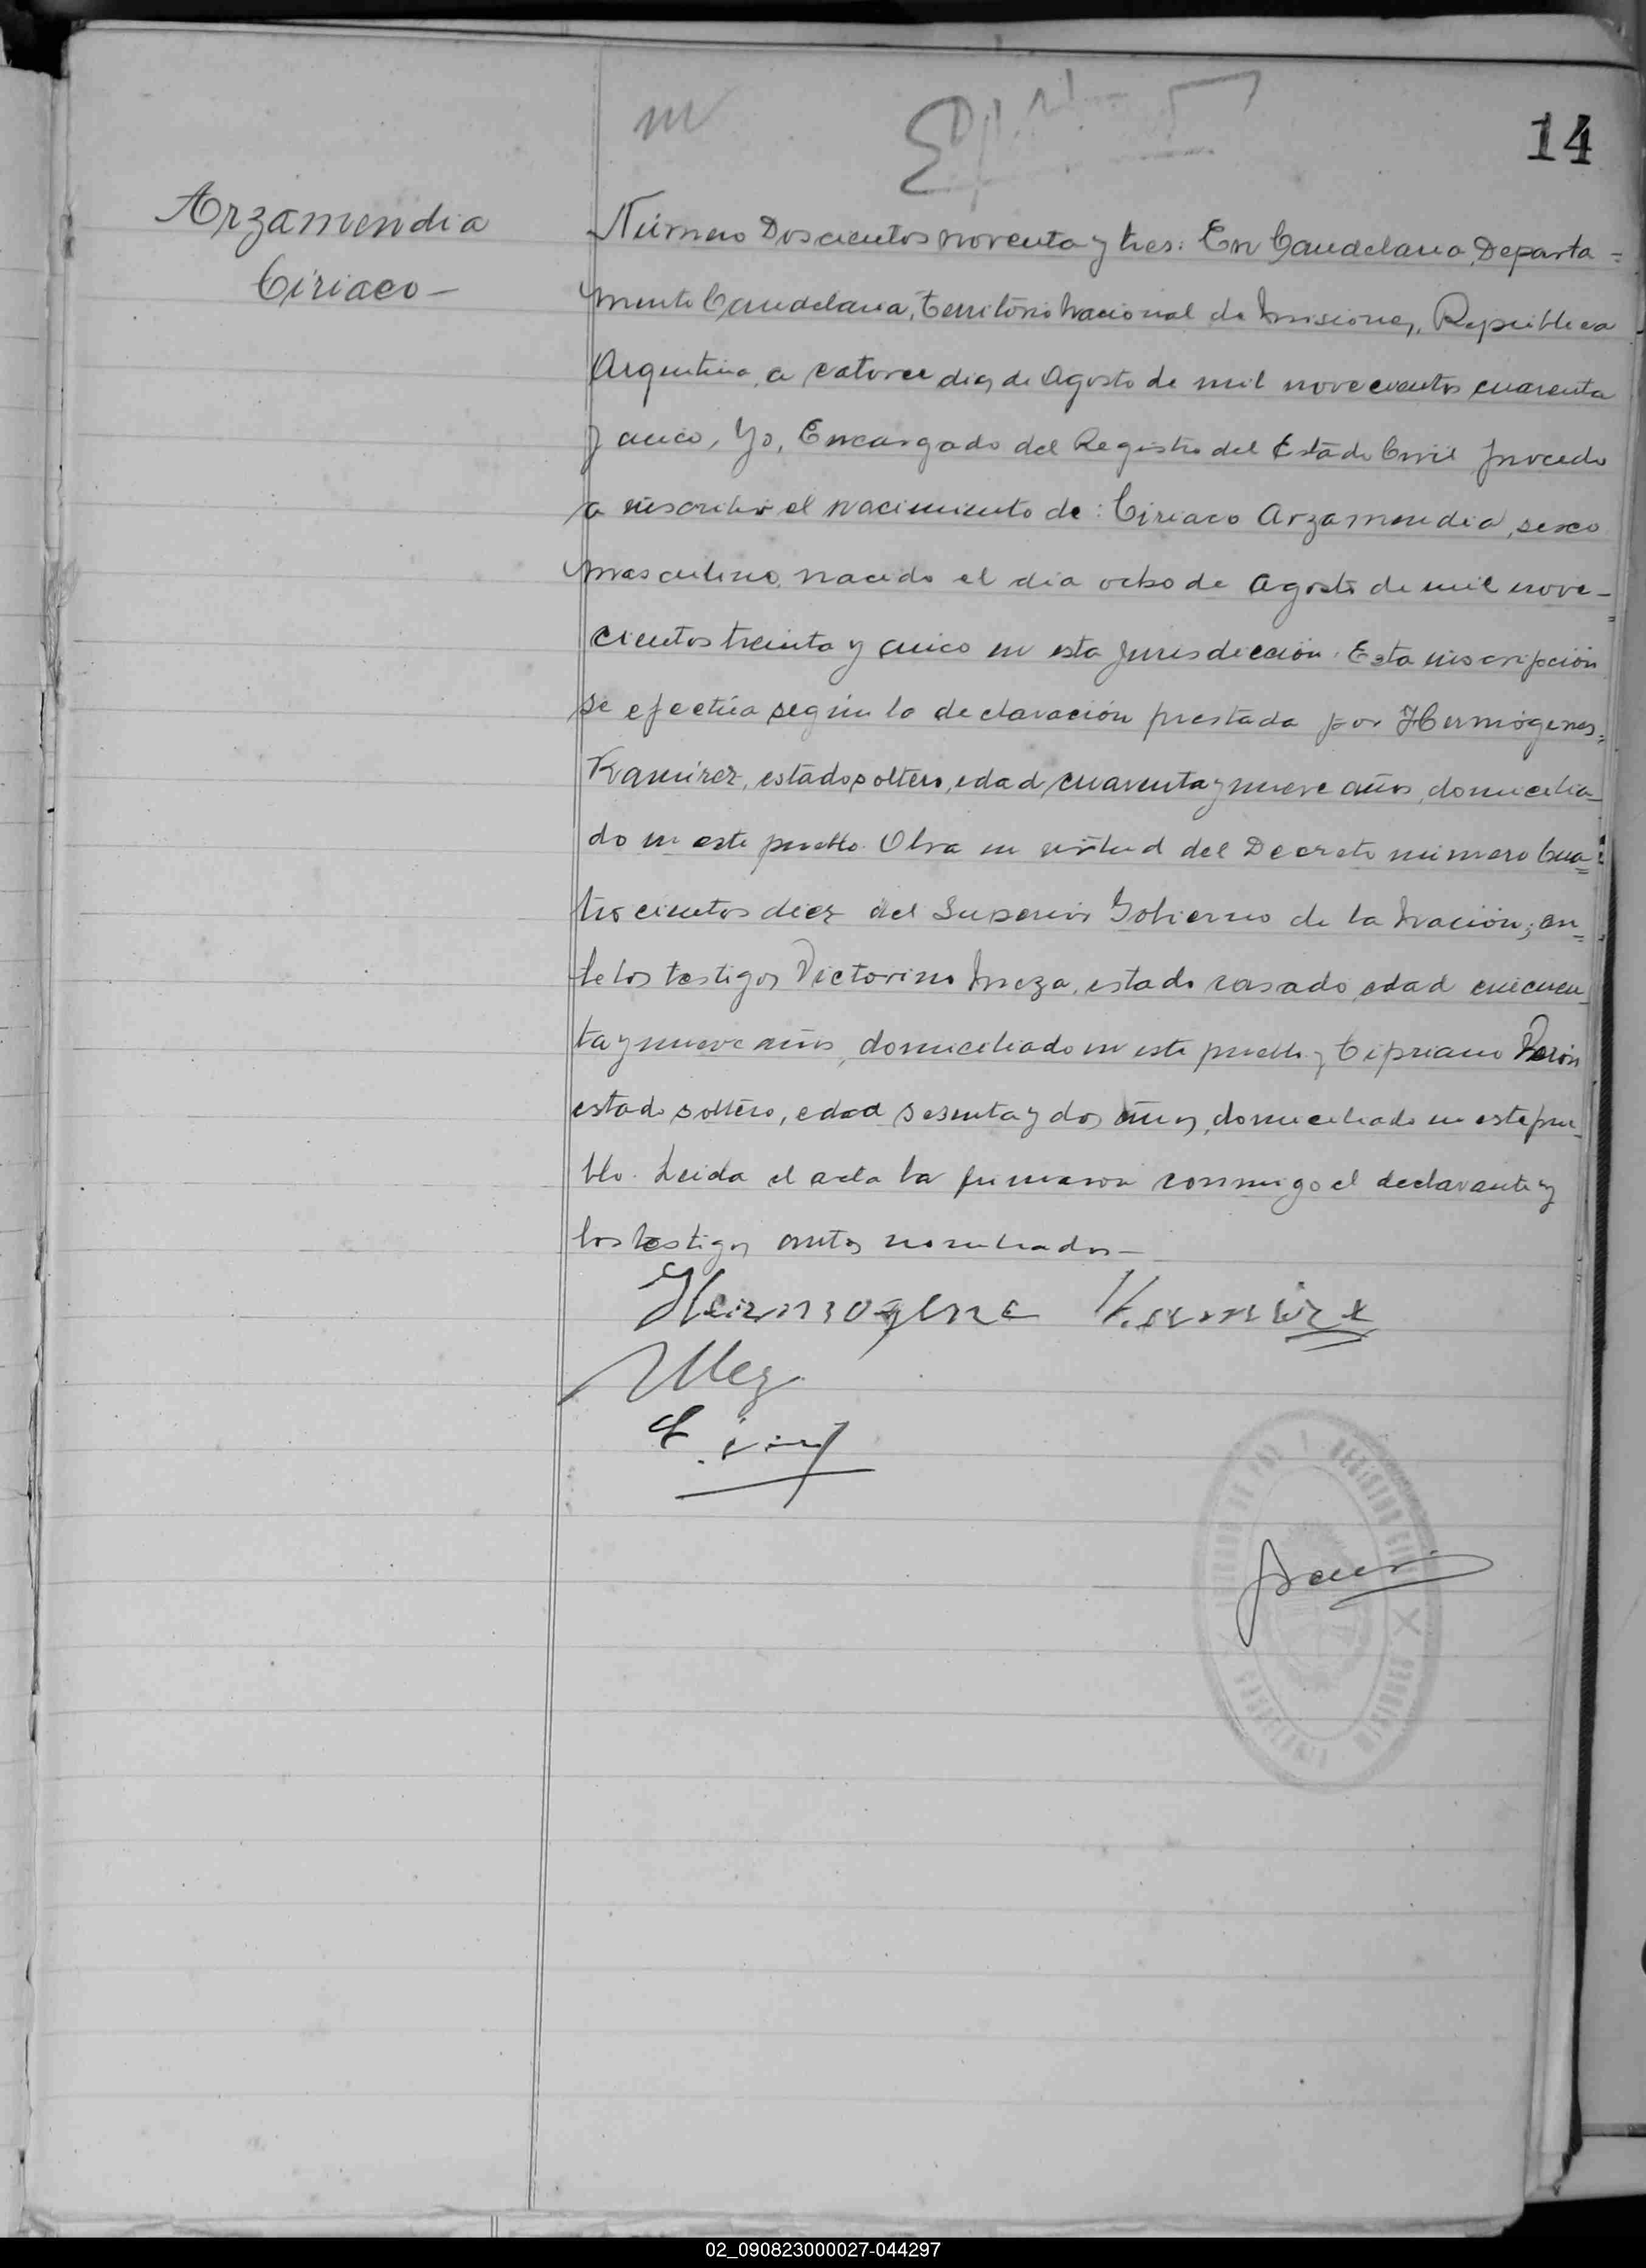 14
Arzamendia
Ciriaco-
Número Doscientos noventa y tres: En Candelaria, Departa=
mento Candelaria, Territorio Nacional de Misiones, República
Argentina, a catorce días de Agosto de mil novecientos cuarenta
y cinco, Yo, Encargado del Registro del Estado Civil procedo
a inscribir el nacimiento de: Ciriaco Arzamendia, sexo
masculino, nacido el día ocho de Agosto de mil nove=
cientos treinta y cinco en esta jurisdicción. Esta inscripción
se efectúa según la declaración prestada por Hermógenes=
Ramírez, estado soltero, edad cuarenta y nueve años, domicilia-
do en este pueblo. Obra en virtud del Decreto número Cua=
trocientos diez del Superior Gobierno de la Nación; an=
te los testigos Victorino Meza, estado casado, edad cincuen-
ta y nueve años, domiciliado en este pueblo y Cipriano
estado soltero, edad sesenta y dos años, domiciliado en este pue-
blo. Leida el acta la firmaron conmigo el declarante y
los testigos antes nombrados-
Hermogene Ramirez
REGISTRO CIVIL
02_090823000027-044297